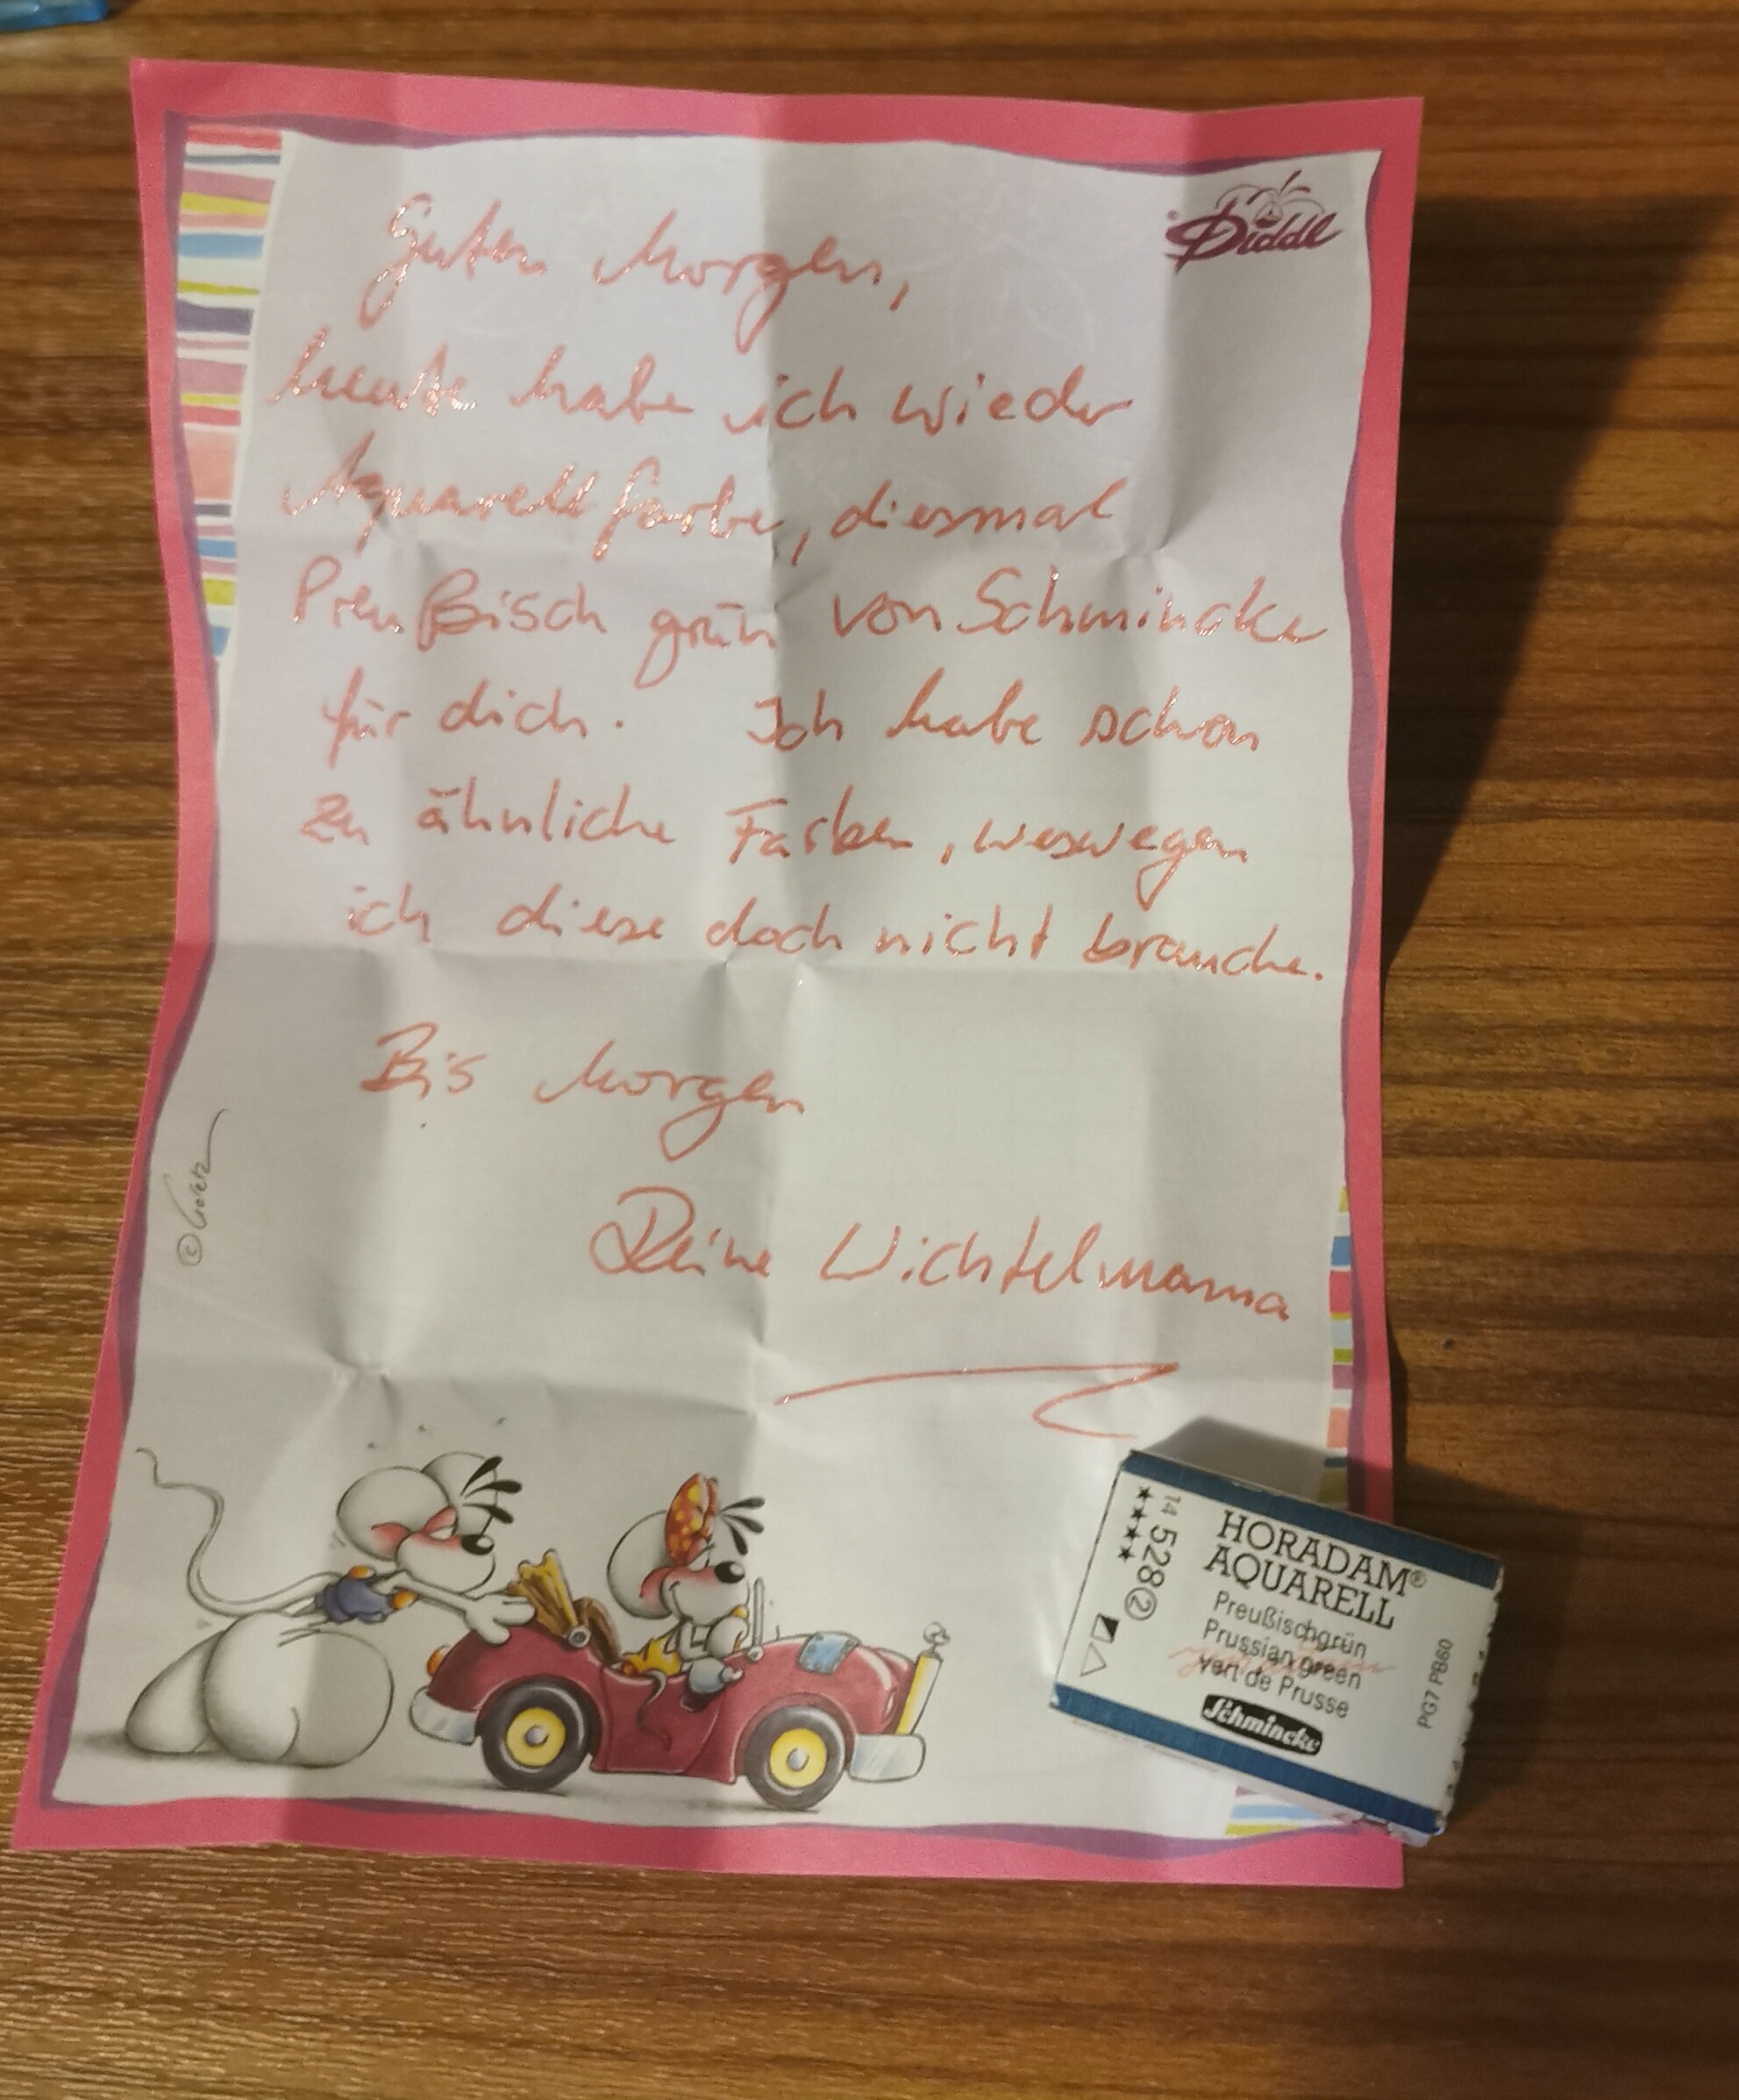 Diddl
Guten Morgen,
heute habe ich wieder
Aquarellfarbe, diesmal
Preußisch grün von Schmincke
für dich. Ich habe schon
zu ähnliche Farben, weswegen
ich diese doch nicht brauche.
Bis Morgen
Deine Wichtelmama
© Goletz
HORADAM®
AQUARELL
Preußischgrün
Prussian green
vert de Prusse
Schmincke
14 528 ②
★★★★
PG7 PB60